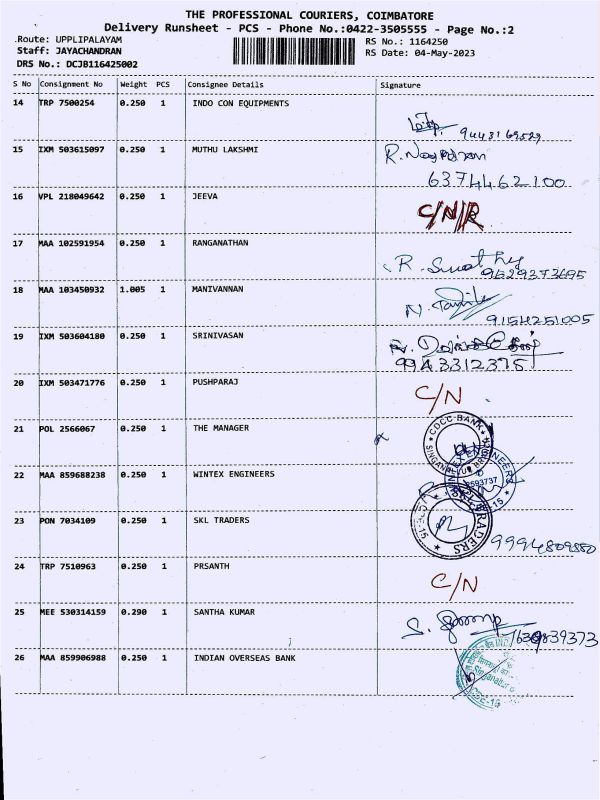 THE PROFESSIONAL COURIERS, COIMBATORE
Delivery Runsheet - PCS - Phone No.:0422-3505555 - Page No.:2
Route: UPPLIPALAYAM
RS No.: 1164250
Staff: JAYACHANDRAN
RS Date: 04-May-2023
DRS No.: DCJB116425002
S No Consignment No Weight PCS Consignee Details Signature
14 TRP 7500254 0.250 1 INDO CON EQUIPMENTS
15 IXM 503615097 0.250 1 MUTHU LAKSHMI
6374462100
16 VPL 218049642 0.250 1 JEEVA C/N/R
17 MAA 102591954 0.250 1 RANGANATHAN
9629373695
18 MAA 103450932 1.005 1 MANIVANNAN
9154251005
19 IXM 503604180 0.250 1 SRINIVASAN
9943312375
20 IXM 503471776 0.250 1 PUSHPARAJ C/N
21 POL 2566067 0.250 1 THE MANAGER CDCC BANK
22 MAA 859688238 0.250 1 WINTEX ENGINEERS
23 PON 7034109 0.250 1 SKL TRADERS
24 TRP 7510963 0.250 1 PRSANTH C/N
25 MEE 530314159 0.290 1 SANTHA KUMAR
26 MAA 859906988 0.250 1 INDIAN OVERSEAS BANK